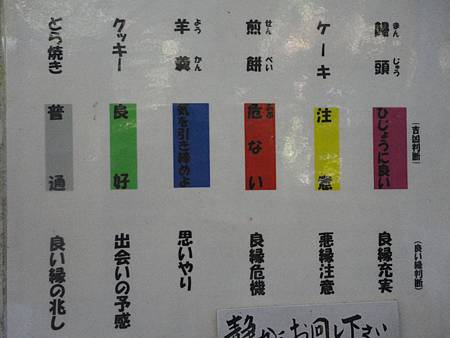 饅頭
まんじゅう
ひじょうに良い
(吉凶判断)
良縁充実
(良い縁判断)
ケーキ
注意
悪縁注意
煎餅
せんべい
危ない
あぶ
良縁危機
羊羹
ようかん
気を引き締めよ
思いやり
クッキー
良好
出会いの予感
どら焼き
普通
良い縁の兆し
静かにお回し下さい